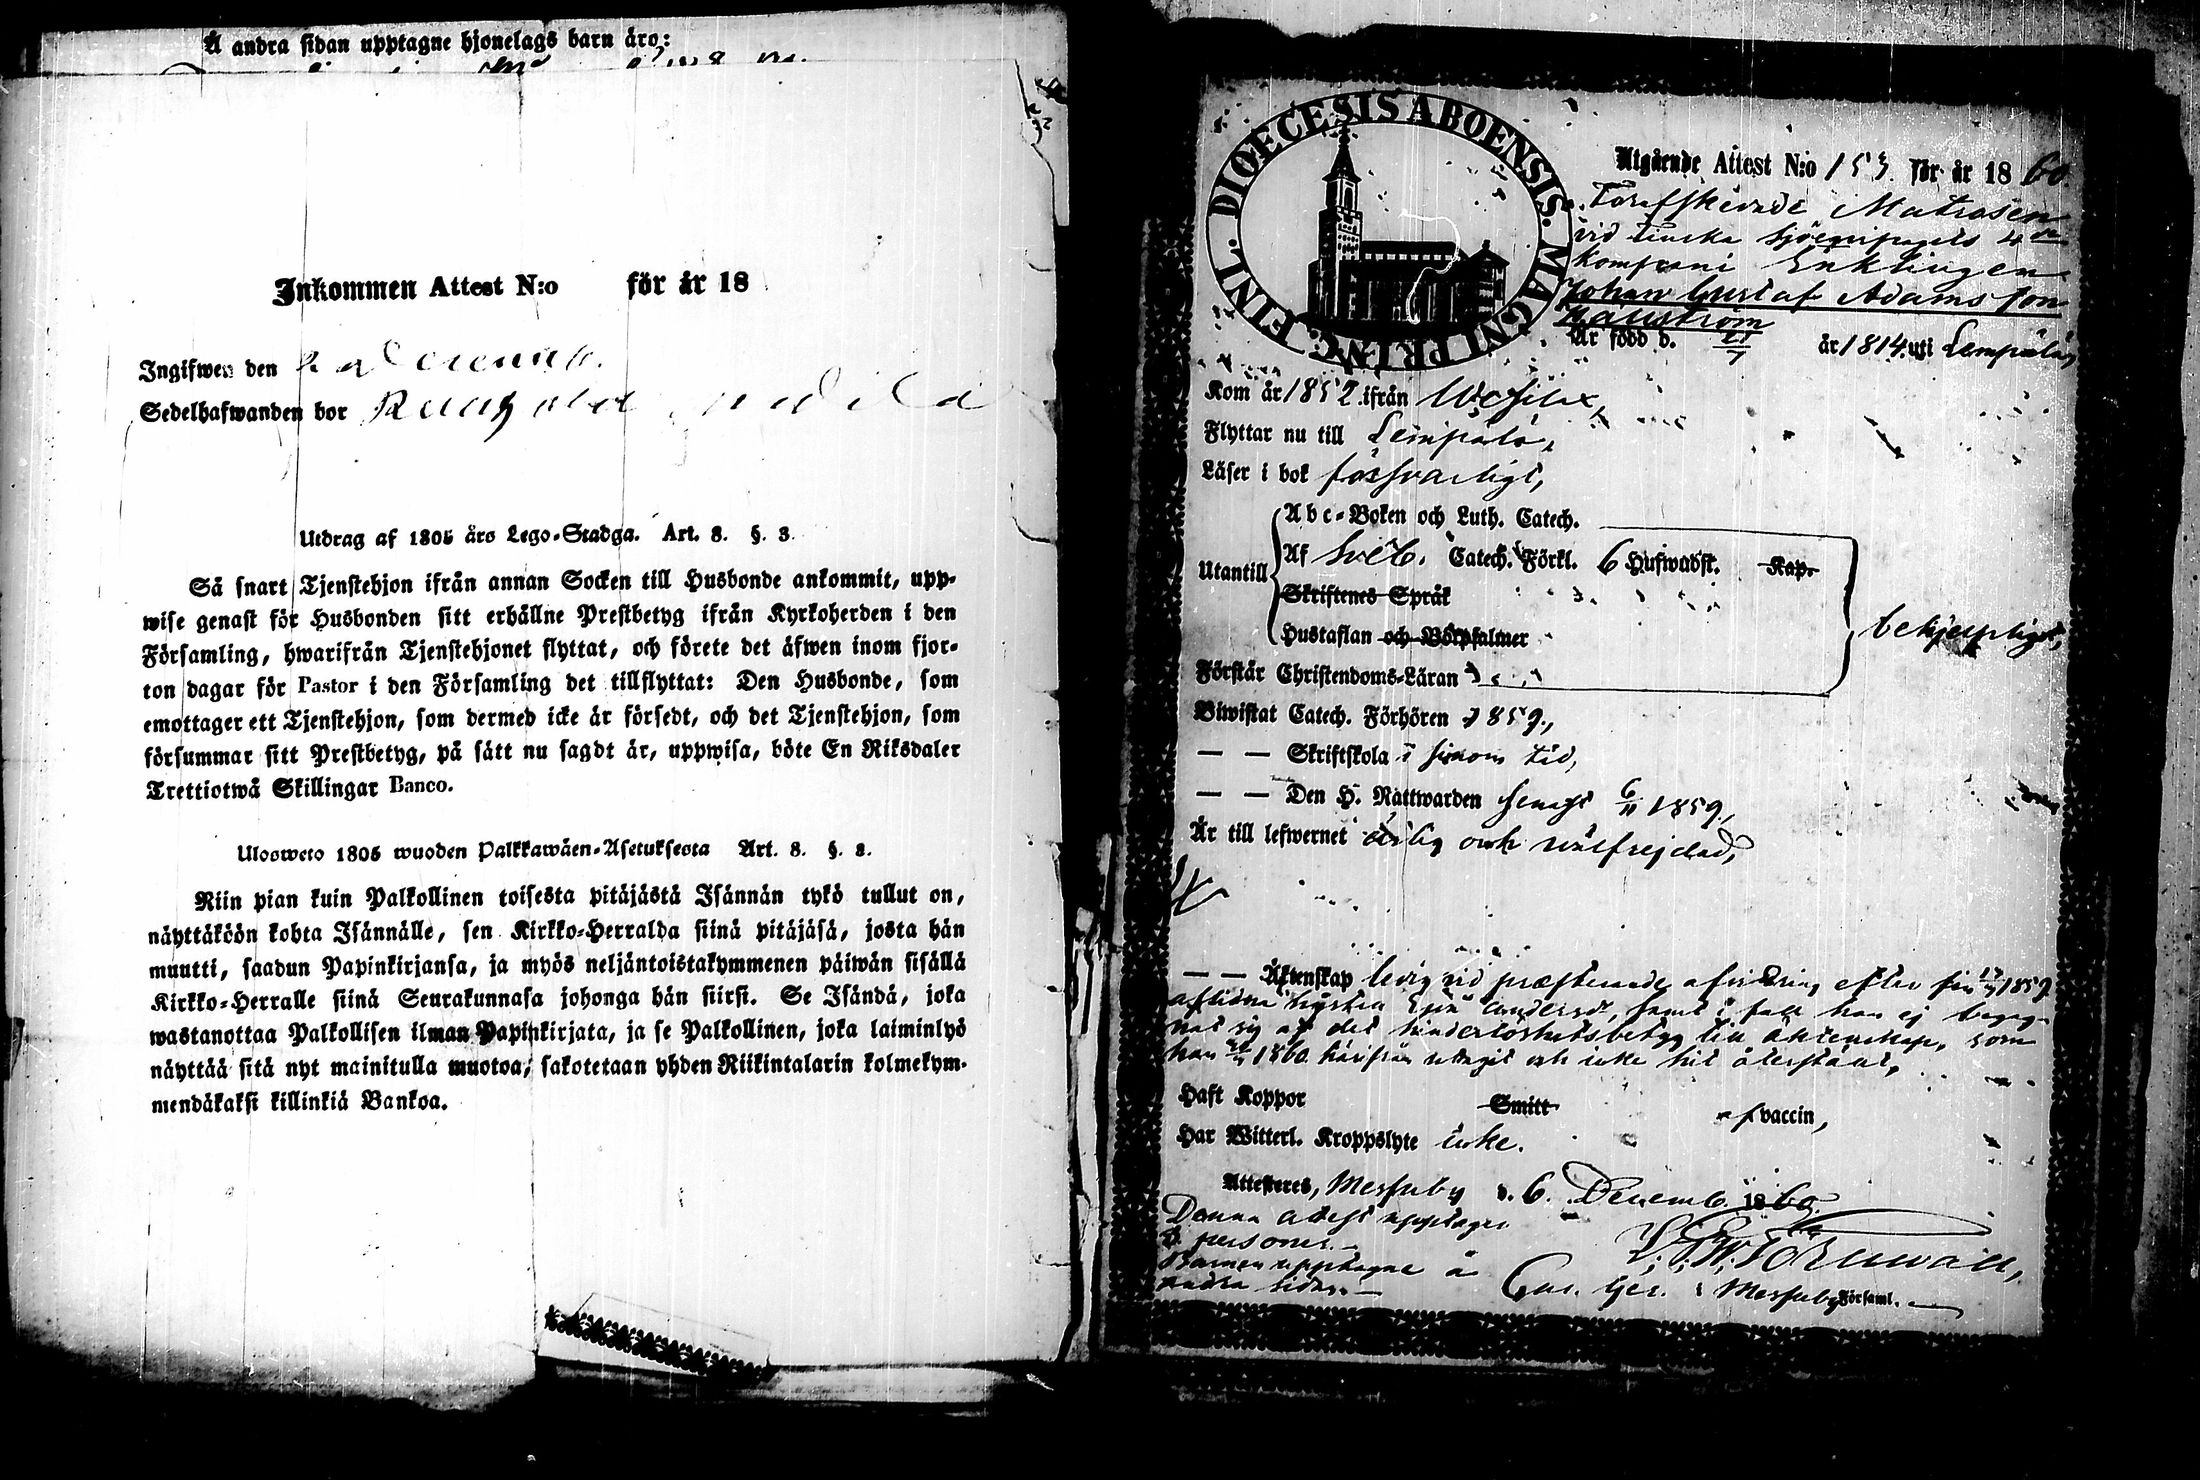 Å andra sidan upptagne hjonelags barn äro:
Inkommen Attest N:o för år 18
Ingifwen den Decemb.
Sedelhafwanden bor
Utdrag af 1805 års Lego-Stadga. Art. 8. §. 3.
Så snart Tjenstehjon ifrån annan Socken till Husbonde ankommit, upp-
wise genast för Husbonden sitt erhållne Prestbetyg ifrån Kyrkoherden i den
Församling, hwarifrån Tjenstehjonet flyttat, och förete det äfwen inom fjor-
ton dagar för Pastor i den Församling det tillflyttat: Den Husbonde, som
emottager ett Tjenstehjon, som dermed icke är försedt, och det Tjenstehjon, som
försummar sitt Prestbetyg, på sätt nu sagdt är, uppwisa, böte En Riksdaler
Trettiotwå Skillingar Banco.
Ulosweto 1805 wuoden Palkkawäen-Asetuksesta Art. 8. §. 3.
Niin pian kuin Palkollinen toisesta pitäjästä Isännän tykö tullut on,
näyttäköön kohta Isännälle, sen Kirkko-Herralda siinä pitäjäsä, josta hän
muutti, saadun Papinkirjansa, ja myös neljäntoistakymmenen päiwän sisällä
Kirkko-Herralle siinä Seurakunnasa johonga hän siirsi. Se Isändä, joka
wastanottaa Palkollisen ilman Papinkirjata, ja se Palkollinen, joka laiminlyö
näyttää sitä nyt mainitulla muotoa, sakotetaan yhden Riikintalarin kolmekym-
mendäkaksi killinkiä Bankoa.
FINL. DIOECESIS ABOENSIS. MAGNI PRINC.
Utgående Attest N:o 153. för år 1860.
Torafskedade Matrosen
vid Finska Sjöequipagets 4de
Kompani Enklingen
Johan Gustaf Adamsson
Hallström
Är född d. 21/7 år 1814. uti Lempälä,
Kom år 1852. ifrån Wesilax,
Flyttar nu till Lempälä,
Läser i bok försvarligt,
Abc-Boken och Luth. Catech.
Utantill Af Sveb. Catech. Förkl. 6 Hufwudst. Kap.
Skriftenes Språk
Hustaflan och Botpsalmer
behjelpligt,
Förstår Christendoms-Läran
Biwistat Catech. Förhören 1859.,
— — Skriftskola i sinom tid,
— — Den H. Nattwarden senast 6/11 1859.,
Är till lefwernet ärlig och välfrejdad,
— — Äktenskap ledig vid præsterande afvittring efter sin 1859
aflidna hustru Andersdr, samt i fall han ej begag-
nat sig af det hinderlöshetsbetyg till äktenskap, som
han 1860 härifrån uttagit och icke hit återstäldt,
Haft Koppor Smitt af vaccin,
Har Witterl. Kroppslyte icke.
Attesteres, Messuby d. 6. Decemb. 1860.
Denna attest upptager
3 personer. —
Barnen upptagne å
andra sidan. —
i Messuby Församl.